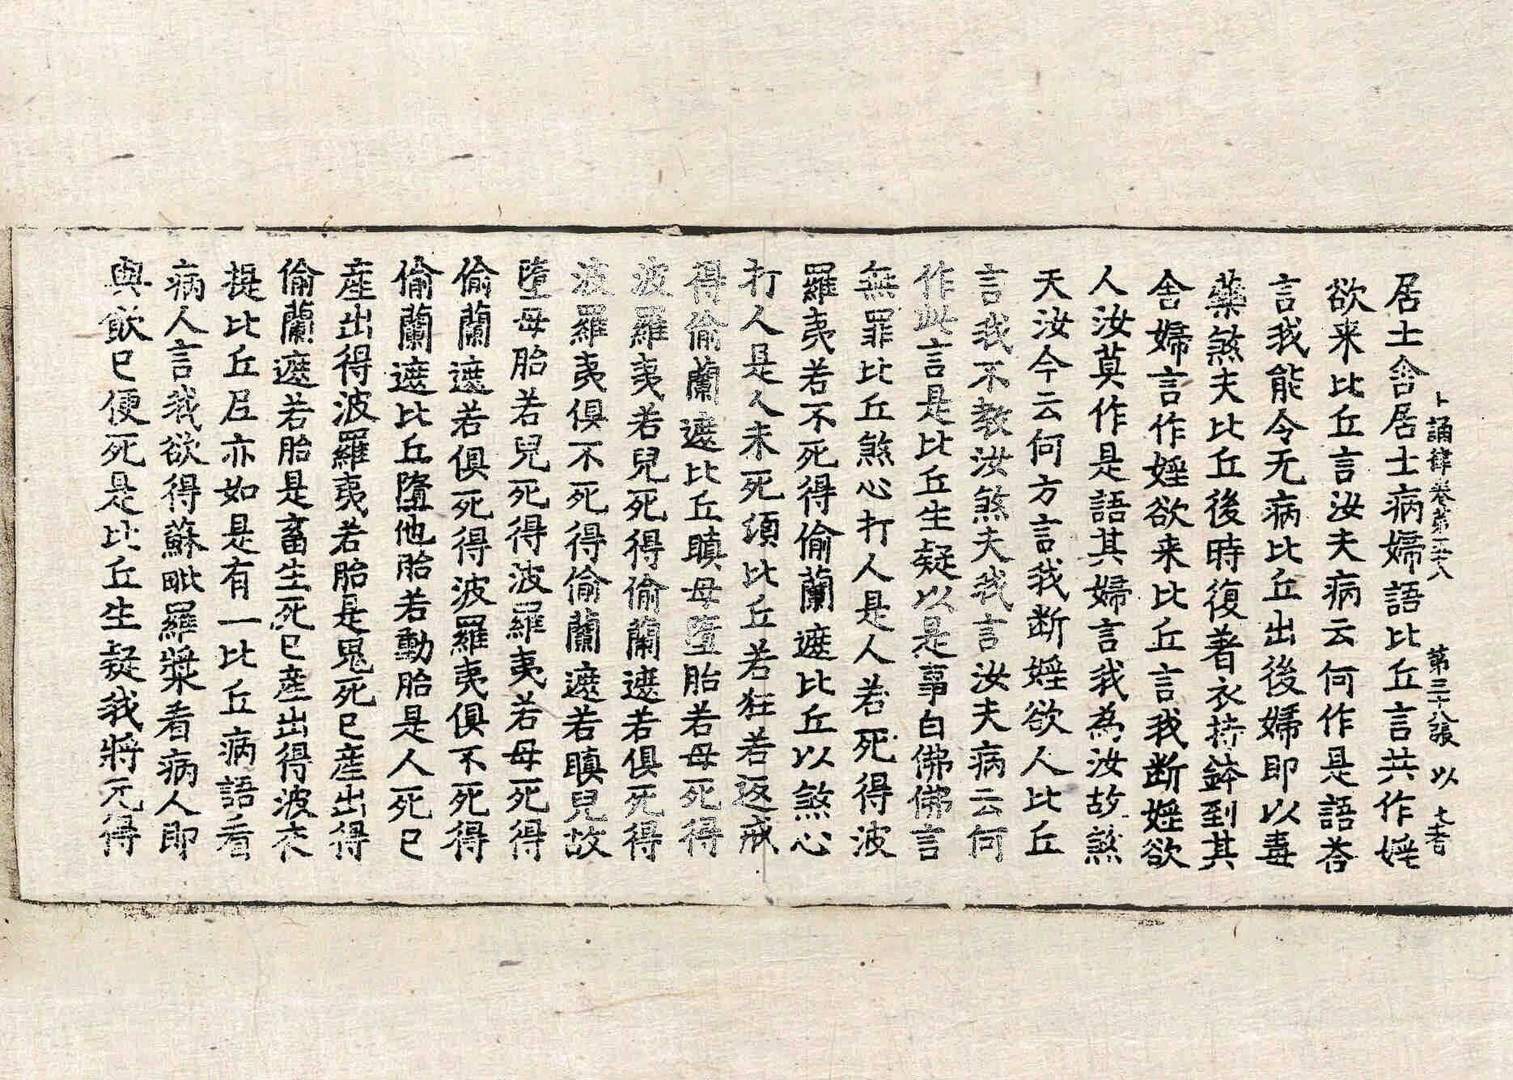 十誦律卷第五十八 第三十八張 以
居士舍居士病婦語比丘言共作婬
欲来比丘言汝夫病云何作是語荅
言我能令无病比丘出後婦即以毒
藥煞夫比丘後時復著衣持鉢到其
舍婦言作婬欲来比丘言我断婬欲
人汝莫作是語其婦言我為汝故煞
天汝今云何方言我断婬欲人比丘
言我不教汝煞夫我言汝夫病云何
作此言是比丘生疑以是事白佛佛言
無罪比丘煞心打人是人若死得波
羅夷若不死得偷蘭遮比丘以煞心
打人是人未死須比丘若狂若返戒
得偷蘭遮比丘瞋母墮胎若母死得
波羅夷若兒死得偷蘭遮若俱死得
波羅夷俱不死得偷蘭遮若瞋兒故
墮母胎若兒死得波羅夷若母死得
偷蘭遮若俱死得波羅夷俱不死得
偷蘭遮比丘墮他胎若動胎是人死已
産出得波羅夷若胎是鬼死已産出得
偷蘭遮若胎是畜生死已産出得波夜
提比丘尼亦如是有一比丘病語看
病人言我欲得蘇毗羅漿看病人即
與飲已便死是比丘生疑我將无得